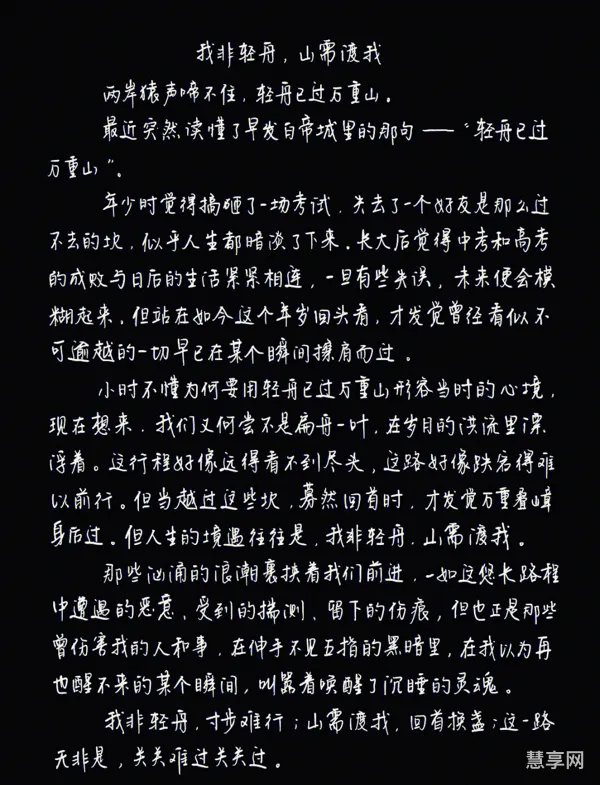 我非轻舟，山需渡我
两岸猿声啼不住，轻舟已过万重山。
最近突然读懂了早发白帝城里的那句——“轻舟已过
万重山”。
年少时觉得搞砸了一场考试、失去了一个好友是那么过
不去的坎，似乎人生都暗淡了下来。长大后觉得中考和高考
的成败与日后的生活紧紧相连，一旦有些失误，未来便会模
糊起来。但站在如今这个年岁回头看，才发觉曾经看似不
可逾越的一切早已在某个瞬间擦肩而过。
小时不懂为何要用轻舟已过万重山形容当时的心境，
现在想来，我们又何尝不是扁舟一叶，在岁月的洪流里漂
浮着。这行程好像远得看不到尽头，这路好像跌宕得难
以前行。但当越过这些坎，蓦然回首时，才发觉万重叠嶂
身后过。但人生的境遇往往是，我非轻舟，山需渡我。
那些汹涌的浪潮裹挟着我们前进，一如这悠长路程
中遭遇的恶意、受到的揣测、留下的伤痕，但也正是那些
曾伤害我的人和事，在伸手不见五指的黑暗里，在我以为再
也醒不来的某个瞬间，叫嚣着唤醒了沉睡的灵魂。
我非轻舟，寸步难行；山需渡我，回首换盏；这一路
无非是，关关难过关关过。
慧享网